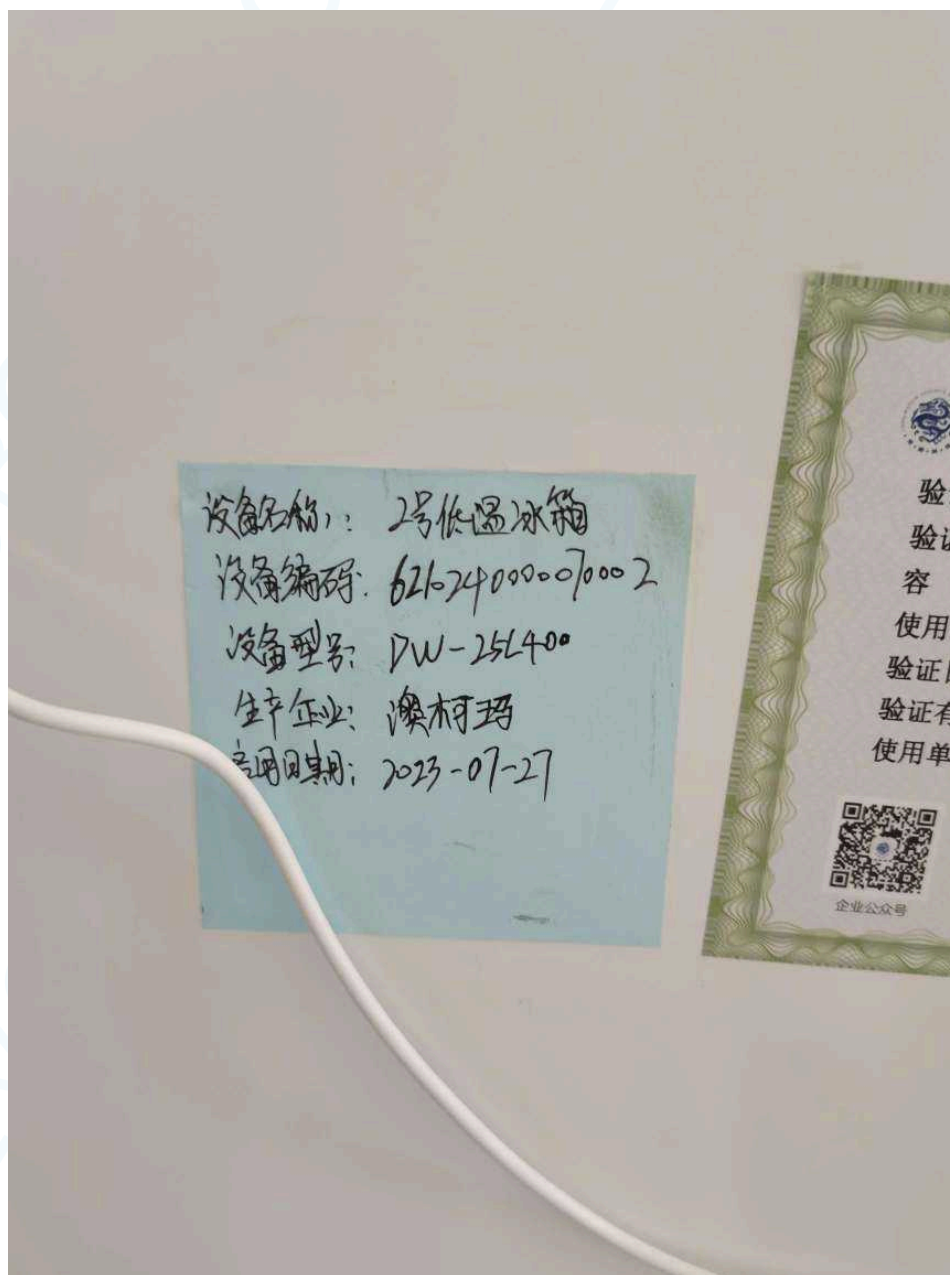 设备名称: 2号低温冰箱
设备编码: 6210240000070002
设备型号: DW-25L400
生产企业: 澳柯玛
启用日期: 2023-07-27
验
验证
容
使用
验证日
验证有
使用单
企业公众号